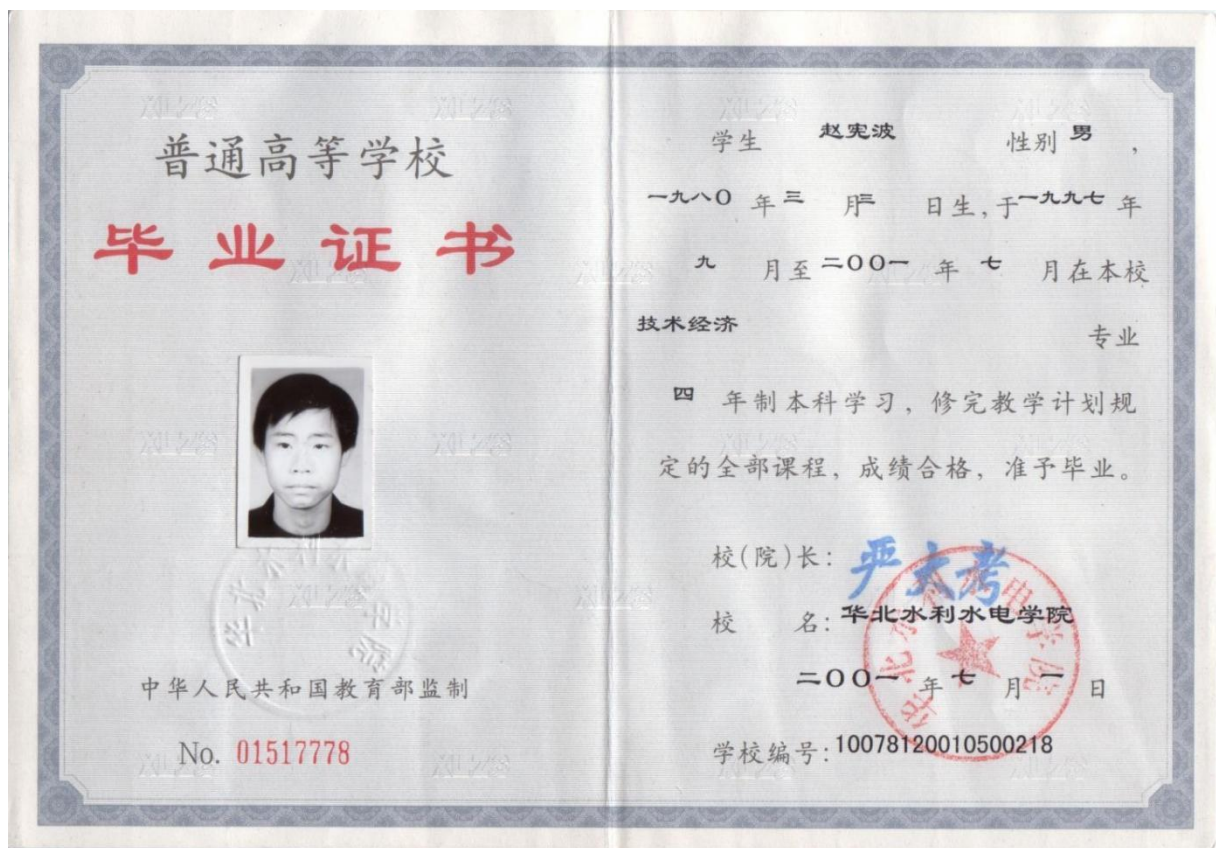 普通高等学校
毕业证书
华北水利水电学院
中华人民共和国教育部监制
No. 01517778
学生 赵宪波 性别 男,
一九八〇 年 三 月 三 日生,于 一九九七 年
九 月至 二〇〇一 年 七 月在本校
技术经济 专业
四 年制本科学习,修完教学计划规
定的全部课程,成绩合格,准予毕业。
校(院)长: 严大考
校 名: 华北水利水电学院
二〇〇一 年 七 月 一 日
华北水利水电学院
学校编号: 10078120010500218